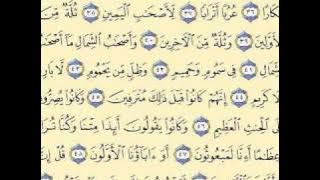 كَارًا ٣٦ عُرُبًا أَتْرَابًا ٣٧ لِّأَصْحَٰبِ ٱلْيَمِينِ ٣٨ ثُلَّةٌ مِّنَ
لْأَوَّلِينَ ٣٩ وَثُلَّةٌ مِّنَ ٱلْءَاخِرِينَ ٤٠ وَأَصْحَٰبُ ٱلشِّمَالِ مَآ أَصْحَٰ
شِّمَالِ ٤١ فِى سَمُومٍ وَحَمِيمٍ ٤٢ وَظِلٍّ مِّن يَحْمُومٍ ٤٣ لَّا بَارِ
لَا كَرِيمٍ ٤٤ إِنَّهُمْ كَانُوا۟ قَبْلَ ذَٰلِكَ مُتْرَفِينَ ٤٥ وَكَانُوا۟ يُصِرُّو
لَى ٱلْحِنثِ ٱلْعَظِيمِ ٤٦ وَكَانُوا۟ يَقُولُونَ أَئِذَا مِتْنَا وَكُنَّا تُرَا
عِظَٰمًا أَءِنَّا لَمَبْعُوثُونَ ٤٧ أَوَءَابَآؤُنَا ٱلْأَوَّلُونَ ٤٨ قُلْ إِنَّ